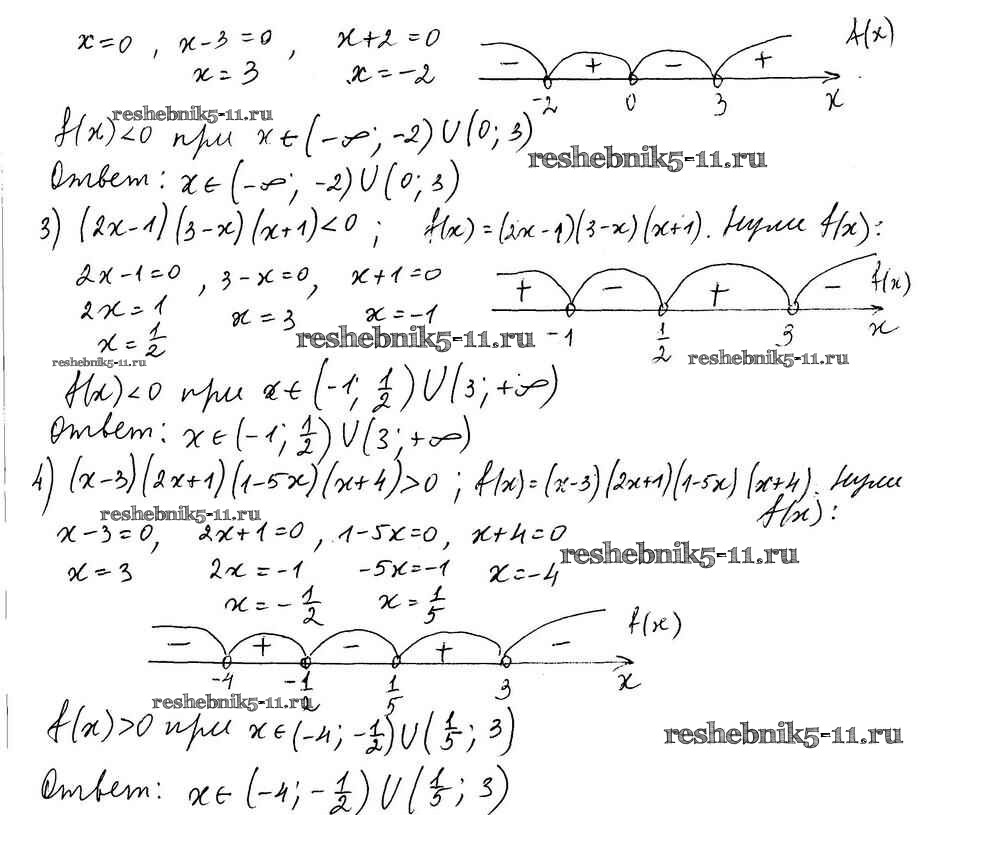 x=0 , x-3=0 , x+2=0
x=3 x=-2
f(x)
- + - +
-2 0 3 x
reshebnik5-11.ru
f(x)<0 при x∈(-∞; -2)∪(0; 3)
reshebnik5-11.ru
Ответ: x∈(-∞; -2)∪(0; 3)
3) (2x-1)(3-x)(x+1)<0 ; f(x)=(2x-1)(3-x)(x+1). Нули f(x):
2x-1=0 , 3-x=0, x+1=0
2x=1 x=3 x=-1
x=1/2
+ - + - f(x)
-1 1/2 3 x
reshebnik5-11.ru
reshebnik5-11.ru
reshebnik5-11.ru
f(x)<0 при x∈(-1; 1/2)∪(3; +∞)
Ответ: x∈(-1; 1/2)∪(3; +∞)
4) (x-3)(2x+1)(1-5x)(x+4)>0 ; f(x)=(x-3)(2x+1)(1-5x)(x+4). Нули
f(x):
reshebnik5-11.ru
x-3=0, 2x+1=0 , 1-5x=0, x+4=0
reshebnik5-11.ru
x=3 2x=-1 -5x=-1 x=-4
x=-1/2 x=1/5
- + - + - f(x)
-4 -1/2 1/5 3 x
reshebnik5-11.ru
f(x)>0 при x∈(-4; -1/2)∪(1/5; 3)
reshebnik5-11.ru
Ответ: x∈(-4; -1/2)∪(1/5; 3)